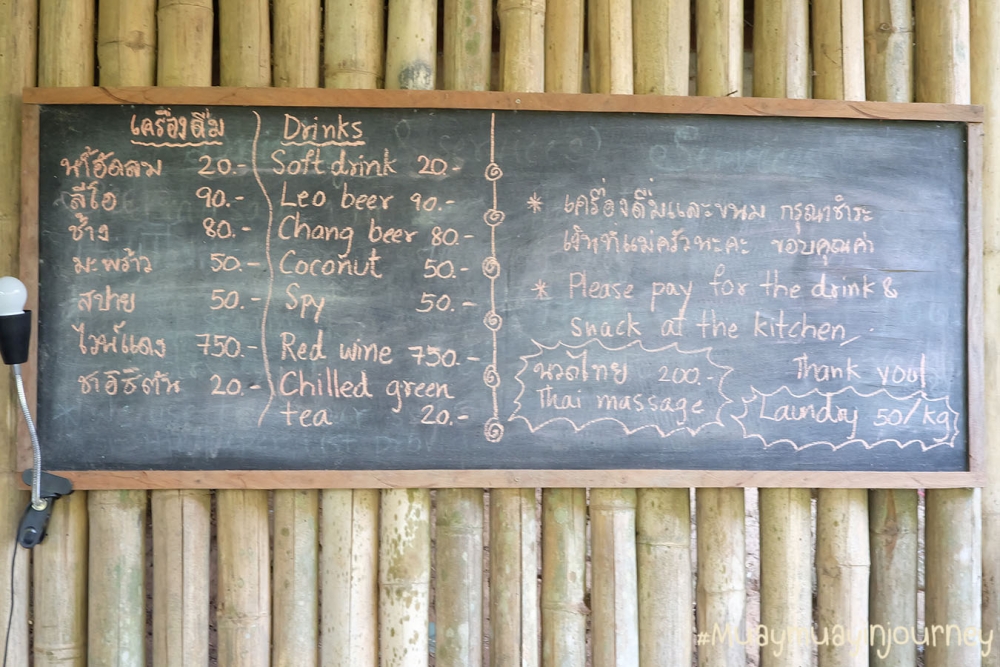 เครื่องดื่ม
น้ำอัดลม 20.-
ลีโอ 90.-
ช้าง 80.-
มะพร้าว 50.-
สปาย 50.-
ไวน์แดง 750.-
ชาอิชิตัน 20.-
Drinks
Soft drink 20.-
Leo beer 90.-
Chang beer 80.-
Coconut 50.-
Spy 50.-
Red wine 750.-
Chilled green
tea 20.-
* เครื่องดื่มและขนม กรุณาชำระ
เงินที่แม่ครัวนะคะ ขอบคุณค่า
* Please pay for the drink &
snack at the kitchen,
Thank you!
นวดไทย 200.-
Thai massage
Laundry 50/kg
#Muaymuaynjourney